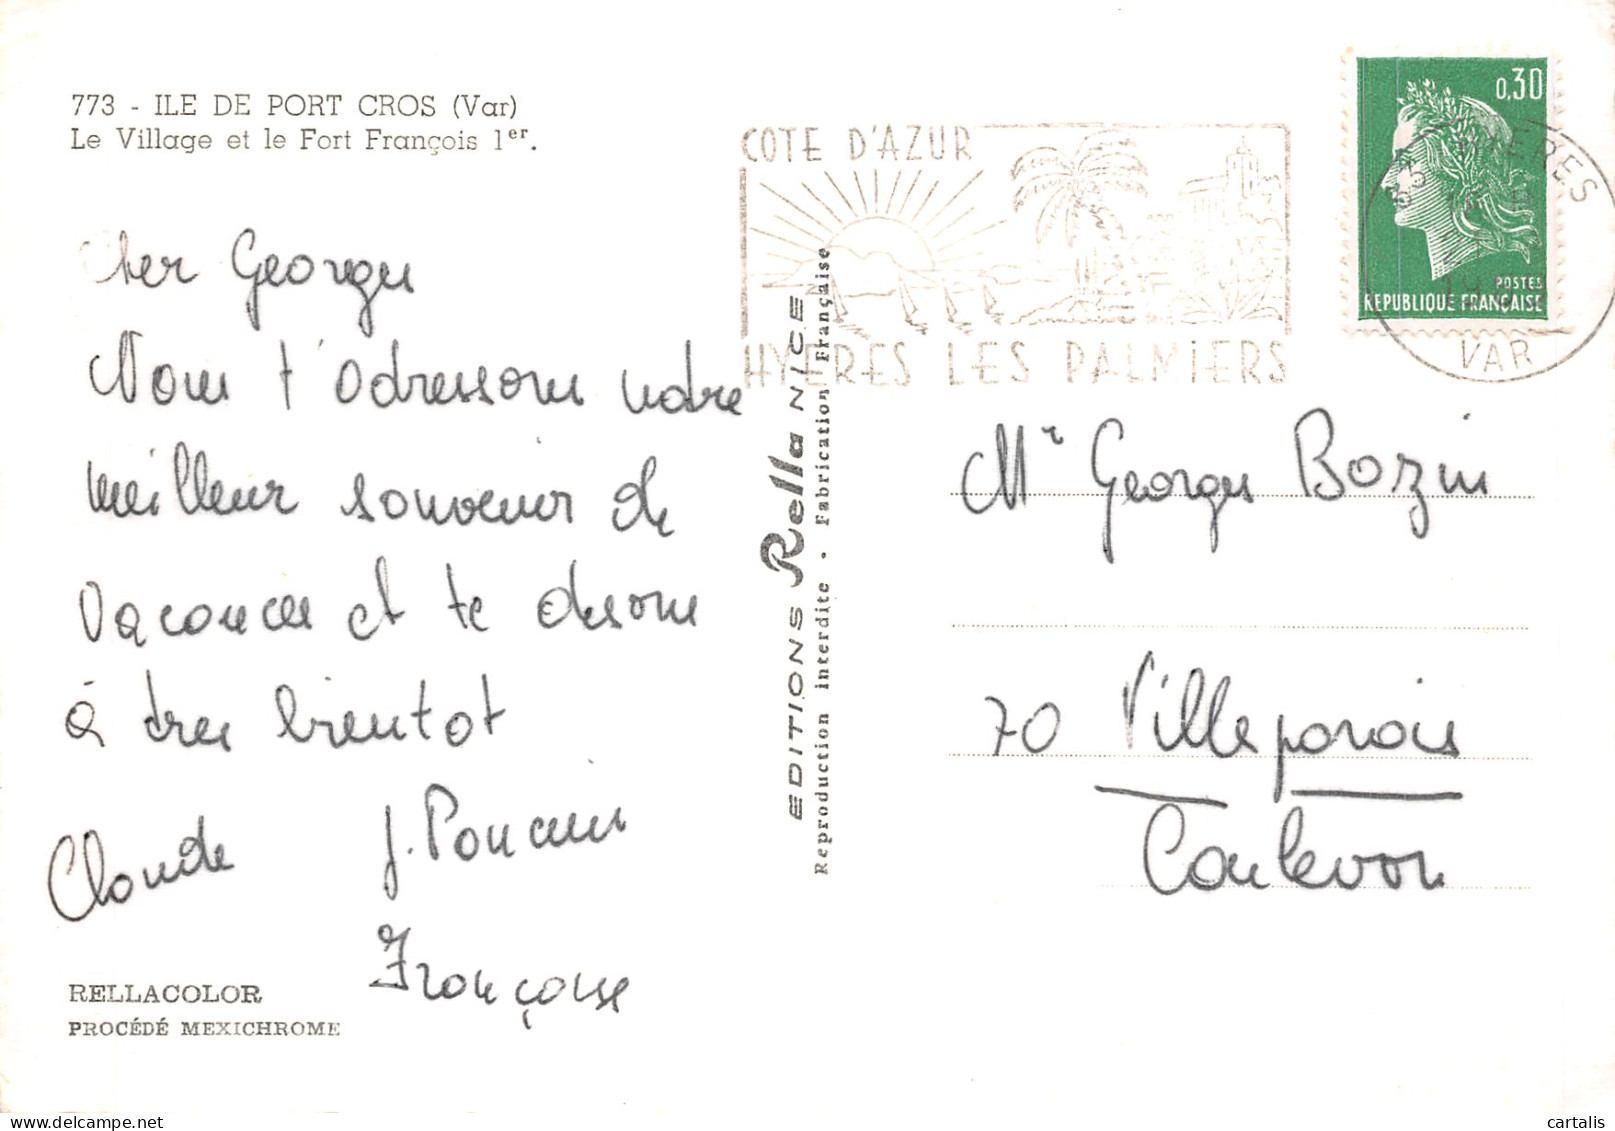 773 - ILE DE PORT CROS (Var)
Le Village et le Fort François 1er.
Cher Georges
Nous t'adressons notre
meilleur souvenir de
vacances et te disons
à tres bientot
Claude J. Poncin
Françoise
RELLACOLOR
PROCÉDÉ MEXICHROME
EDITIONS Rella NICE
Reproduction interdite - Fabrication Française
COTE D'AZUR
HYERES LES PALMIERS
0,30
POSTES
REPUBLIQUE FRANÇAISE
83 HYERES
VAR
Mr Georges Bozin
70 Villeparois
Coulevon
cartalis